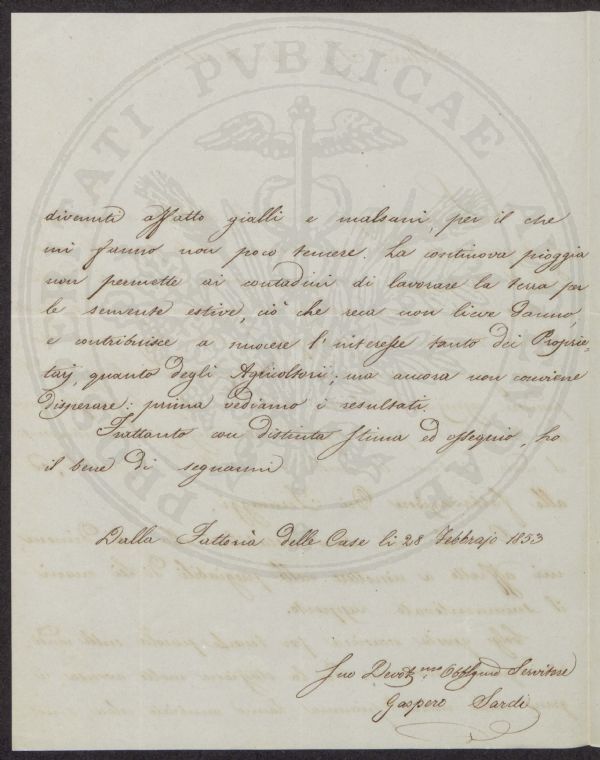 divenuti affatto gialli e malsani, per il che
mi fanno non poco temere. La continova pioggia
non permette ai contadini di lavorare la terra per
le semente estive, ciò che reca non lieve danno,
e contribuisce a nuocere l'interesse tanto dei Proprie-
tarj, quanto degli Agricoltori; ma ancora non conviene
disperare: prima vediamo i resultati.
Frattanto con distinta stima ed ossequio, ho
il bene di segnarmi
Dalla Fattoria delle Case li 28 Febbrajo 1853
Suo Devot.mo Obblgmo Servitore
Gaspero Sardi